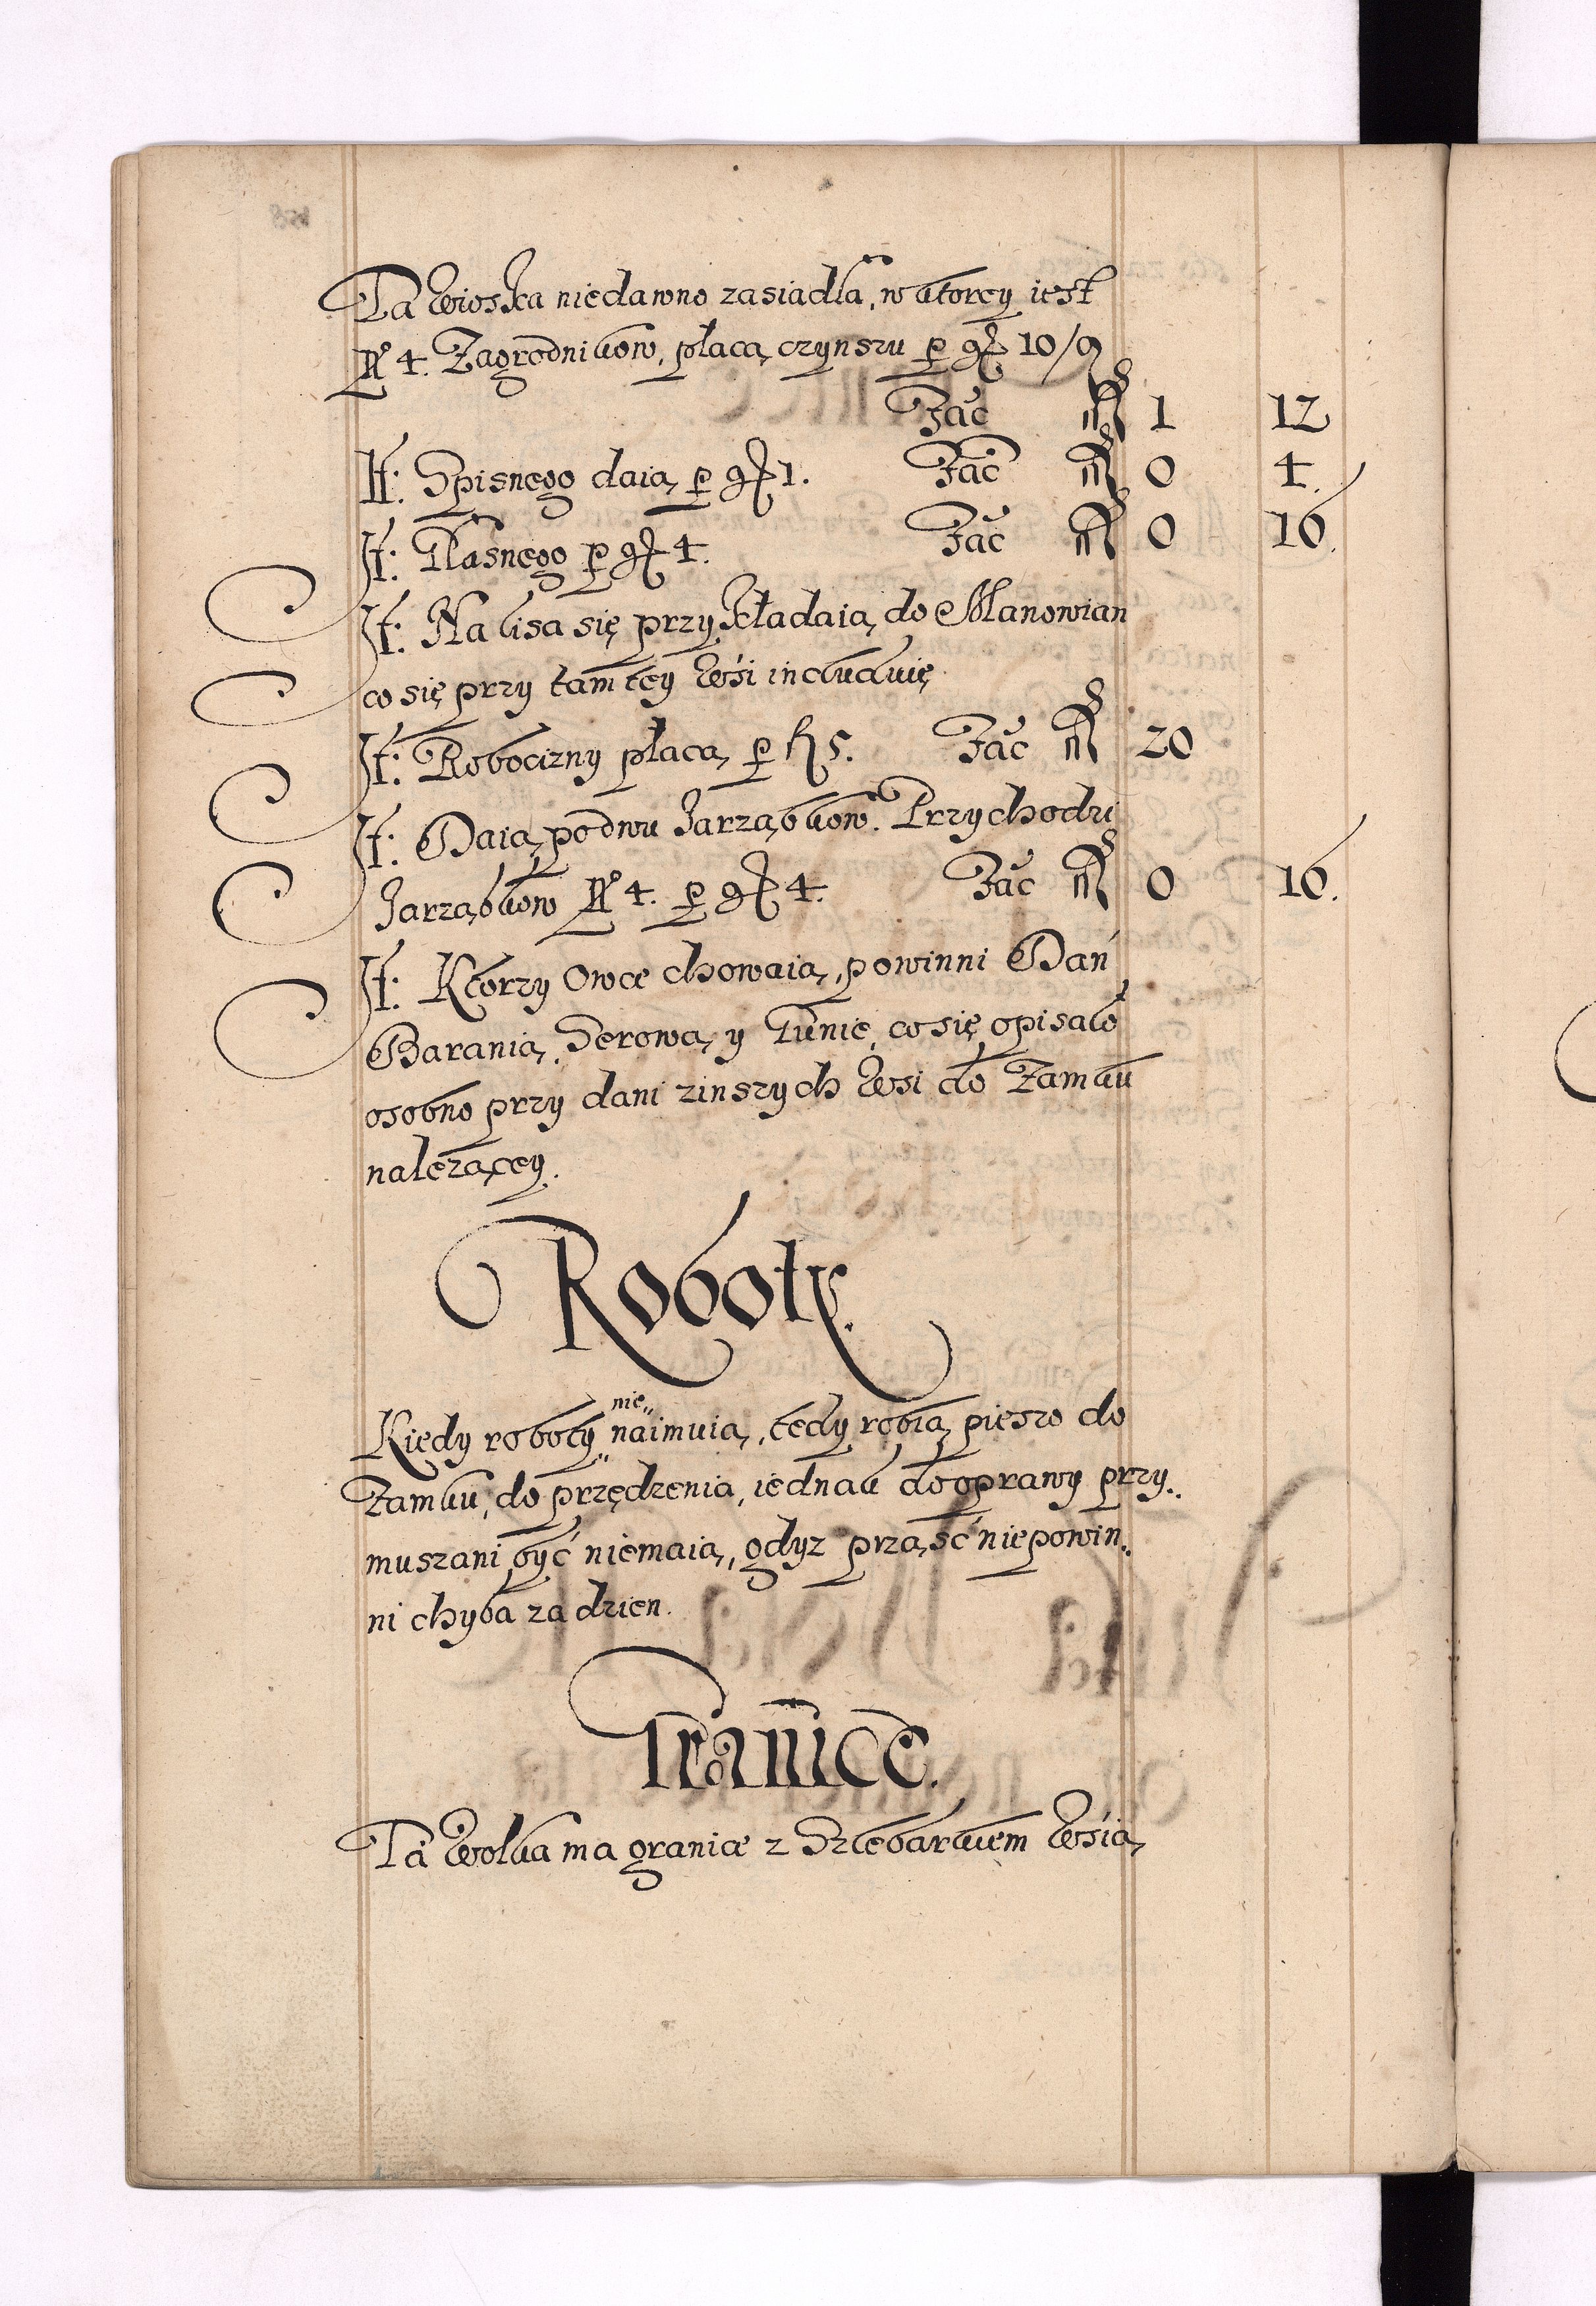 Ta Wioska niedawno zasiadła, w ktorey iest
No 4. Zagrodnikow, płacą czynszu p gr 10/9
Fac m 1 12
It: Spisnego daią p gr 1. Fac m 0 4.
It: Pasnego p gr 4. Fac m 0 16.
It: Na lisa się przykładaią do Manowian
co się przy tamtey Wsi includuię
It: Robocizny płacą p fl 5. Fac m 20
It: Daią po dwu Jarząbkow. Przychodzi
Jarząbkow No 4. p gr 4. Fac m 0 16.
It: Ktorzy Owce chowaią, powinni Dań
Baranią, Serową, y Łunie, co się opisało
osobno przy dani z inszych Wsi do Zamku
należącey.
Roboty.
Kiedy roboty nie naimuią, tedy robią pieszo do
Zamku, do przędzenia, iednak do oprawy przy
muszani być niemaią, gdyz prząść niepowin
ni chyba za dzien.
Granice.
Ta Wolka ma granice z Szlebarkiem Wsią,